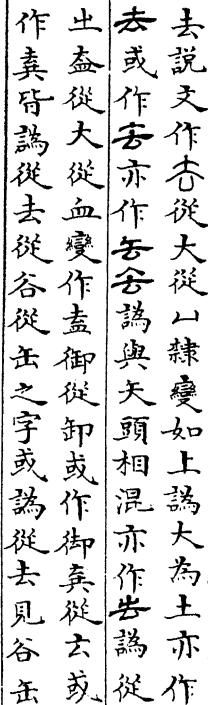 去說文作厺從大從凵隸變如上譌大為土亦作
或作亦作譌與矢頭相混亦作譌從
止盇從大從血變作盍御從卸或作棄從𠫓或
作皆譌從去從谷從缶之字或譌從去見谷缶